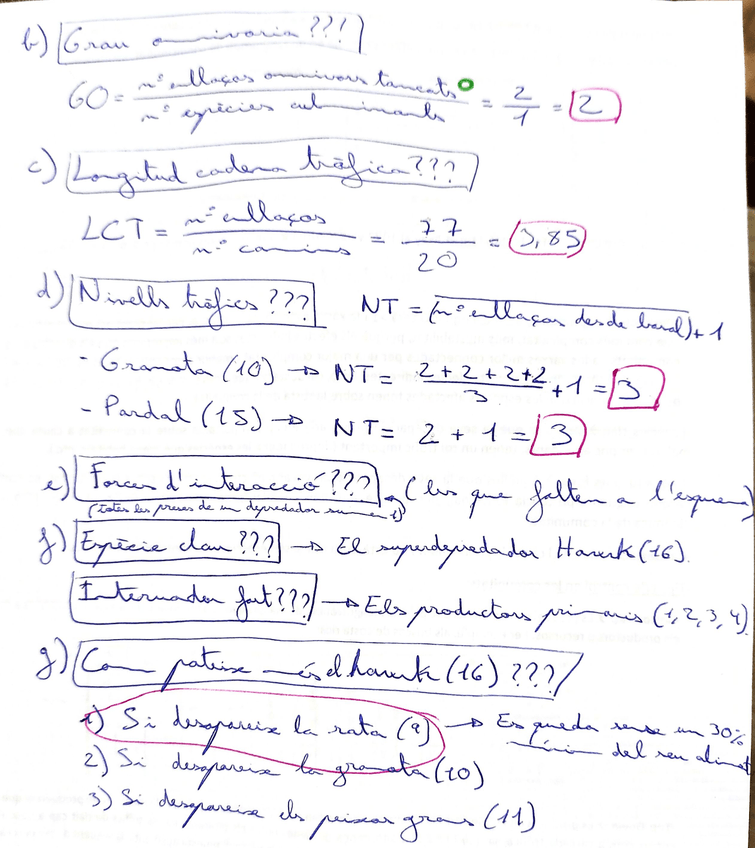 b) Grau omnivoria ??!
GO = nº enllaços omnívors tancats / nº espècies culminants = 2/1 = 2
c) Longitud cadena tròfica ???
LCT = nº enllaços / nº camins = 77/20 = 3,85
d) Nivells tròfics ??? NT = (nº enllaços desde basal) + 1
- Granota (10) → NT = 2 + 2 + 2 + 2 / 3 + 1 = 3
- Pardal (15) → NT = 2 + 1 = 3
e) Forces d'interacció ??? (les que falten a l'esquema)
(totes les preses de un depredador sumen 1)
f) Espècie clau ??? → El superdepredador Hawk (16).
Interuador fort ??? → Els productors primaris (1, 2, 3, 4)
g) Com pateixe més el hawk (16) ???
1) Si desapareix la rata (9) → Es queda sense un 30%
mínim del seu aliment
2) Si desapareix la granota (10)
3) Si desapareixe els peixos grans (11)